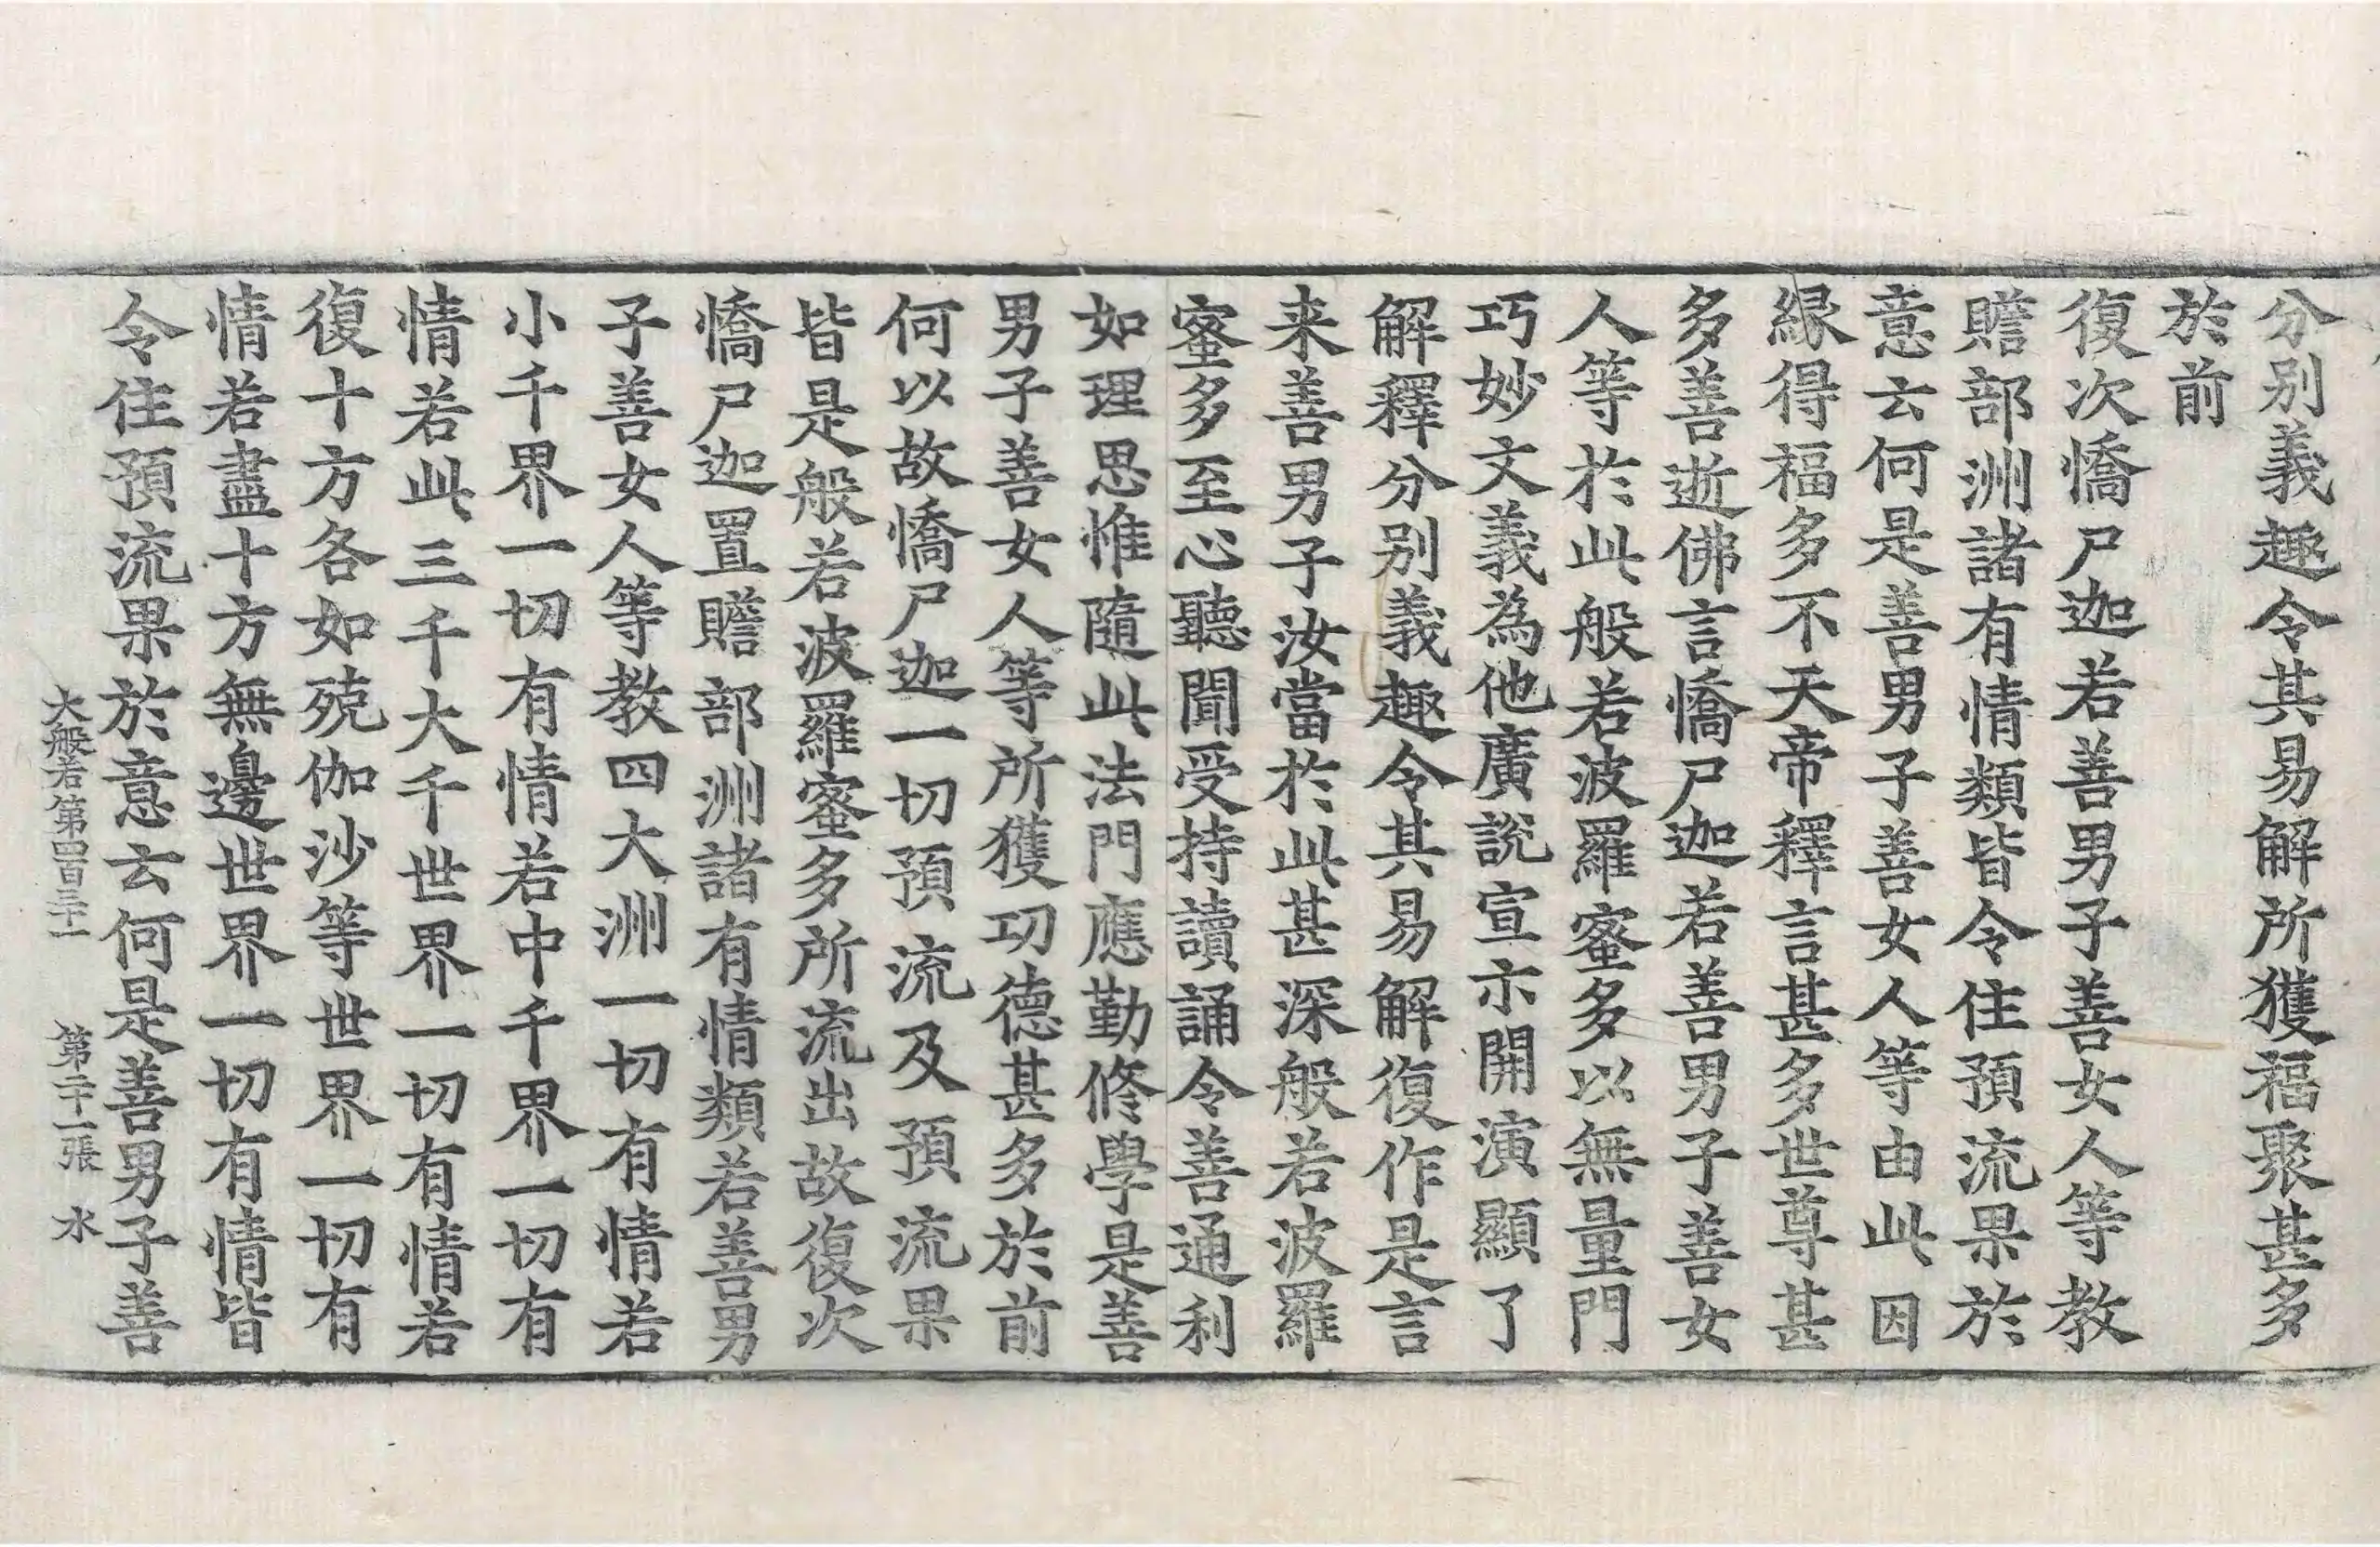 分别義趣令其易解所獲福聚甚多
於前
復次憍尸迦若善男子善女人等教
贍部洲諸有情類皆令住預流果於
意云何是善男子善女人等由此因
緣得福多不天帝釋言甚多世尊甚
多善逝佛言憍尸迦若善男子善女
人等於此般若波羅蜜多以無量門
巧妙文義為他廣說宣示開演顯了
解釋分别義趣令其易解復作是言
来善男子汝當於此甚深般若波羅
蜜多至心聽聞受持讀誦令善通利
如理思惟隨此法門應勤修學是善
男子善女人等所獲功德甚多於前
何以故憍尸迦一切預流及預流果
皆是般若波羅蜜多所流出故復次
憍尸迦置贍部洲諸有情類若善男
子善女人等教四大洲一切有情若
小千界一切有情若中千界一切有
情若此三千大千世界一切有情若
復十方各如殑伽沙等世界一切有
情若盡十方無邊世界一切有情皆
令住預流果於意云何是善男子善
大般若第四百三十一 第二十一張 水